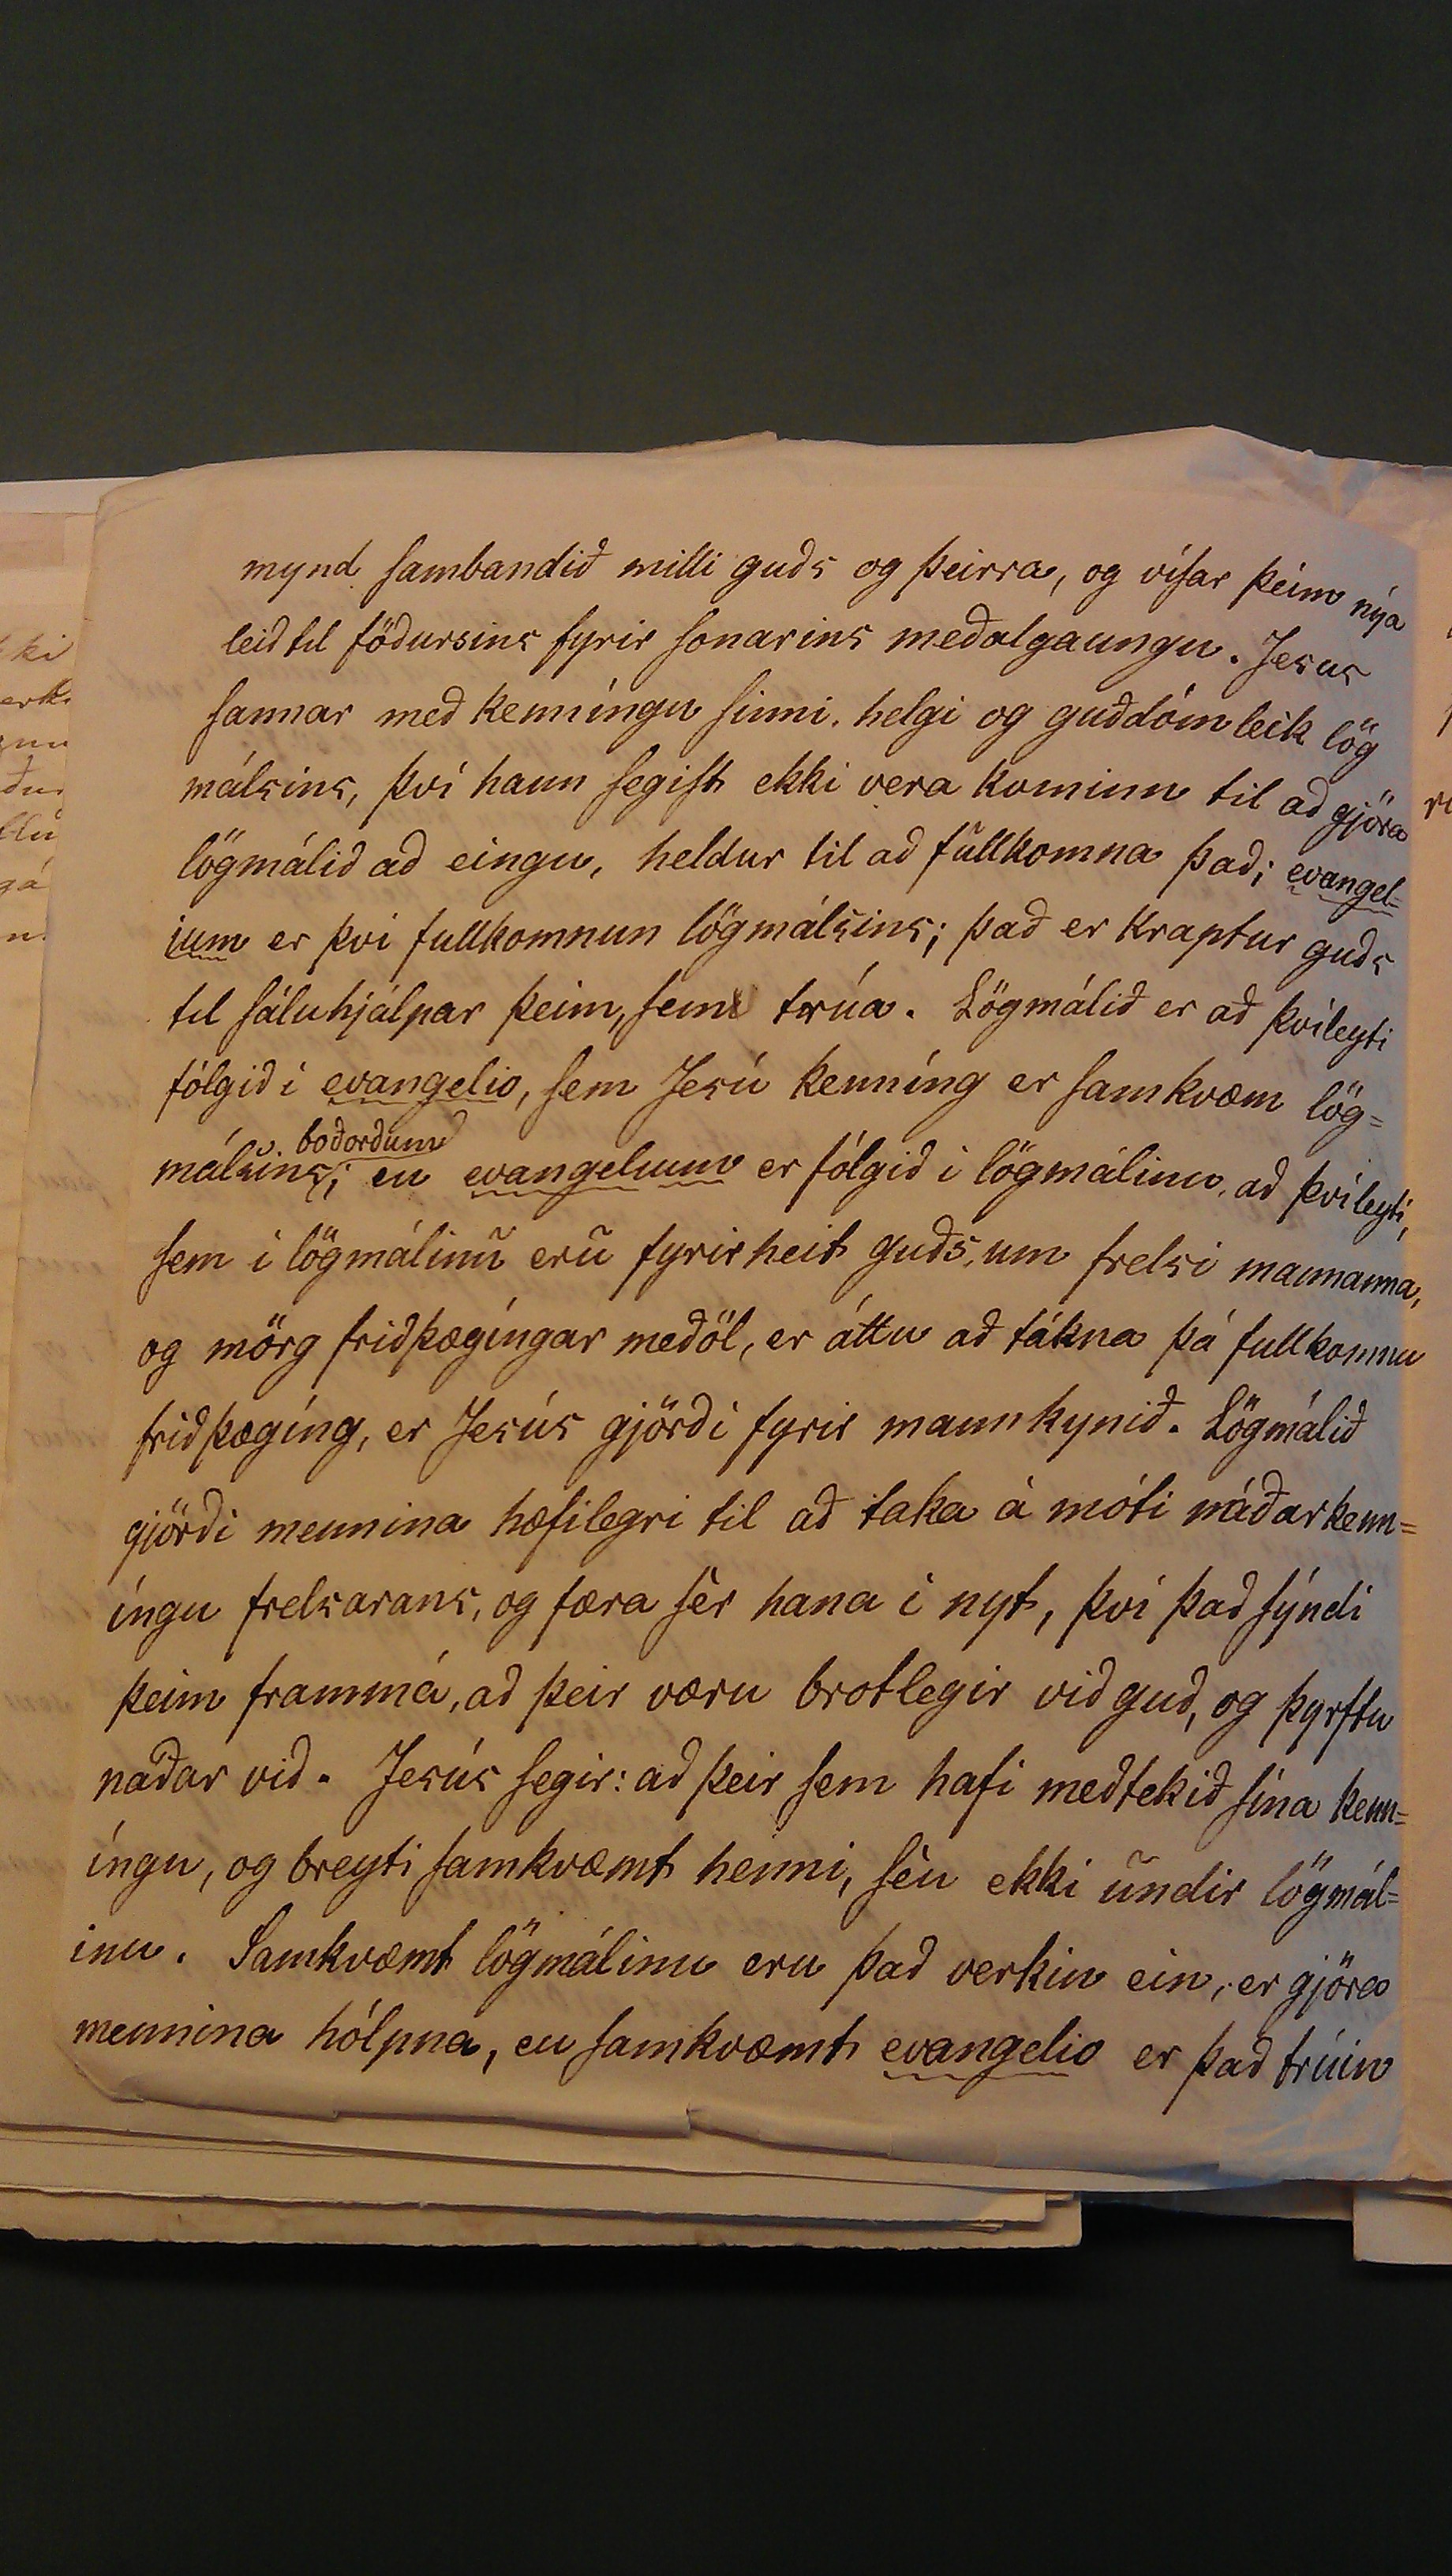 mynd sambandið milli guðs og þeirra, og vísar þeim nýa
leid til födursins fyrir sonarins meðalgaungu. Jesus
sannar með kenníngu sinni, helgi og guðdómleik lög
málsins, því hann segist ekki vera kominn til að gjöra
lögmálið að eingu, heldur til að fullkomna það; evangel=
ium er því fullkomnun lögmálsins; það er kraptur guðs
til sáluhjálpar þeim, sem trúa. Lögmálið er að þvíleyti
fólgið í evangelio, sem Jesú kenníng er samkvæm lög=
boðorðum
málsins; en evangelium er fólgið í lögmálinu, að þvíleyti,
sem í lögmálinu eru fyrirheit guðs, um frelsi mannanna,
og mörg friðþægíngar meðöl, er áttu að tákna þá fullkomnu
friðþægíng, er Jesús gjörði fyrir mannkynið. Lögmálið
gjörði mennina hæfilegri til að taka á móti náðarkenn=
íngu frelsarans, og færa sèr hana í nyt, því það sýndi
þeim frammá, að þeir væru brotlegir við guð, og þyrftu
náðar við. Jesús segir: að þeir sem hafi meðtekið sína kenn=
íngu, og breyti samkvæmt henni, sèu ekki undir lögmál=
inu. Samkvæmt lögmálinu eru það verkin ein, er gjöra
mennina hólpna, en samkvæmt evangelio er það trúin
ki